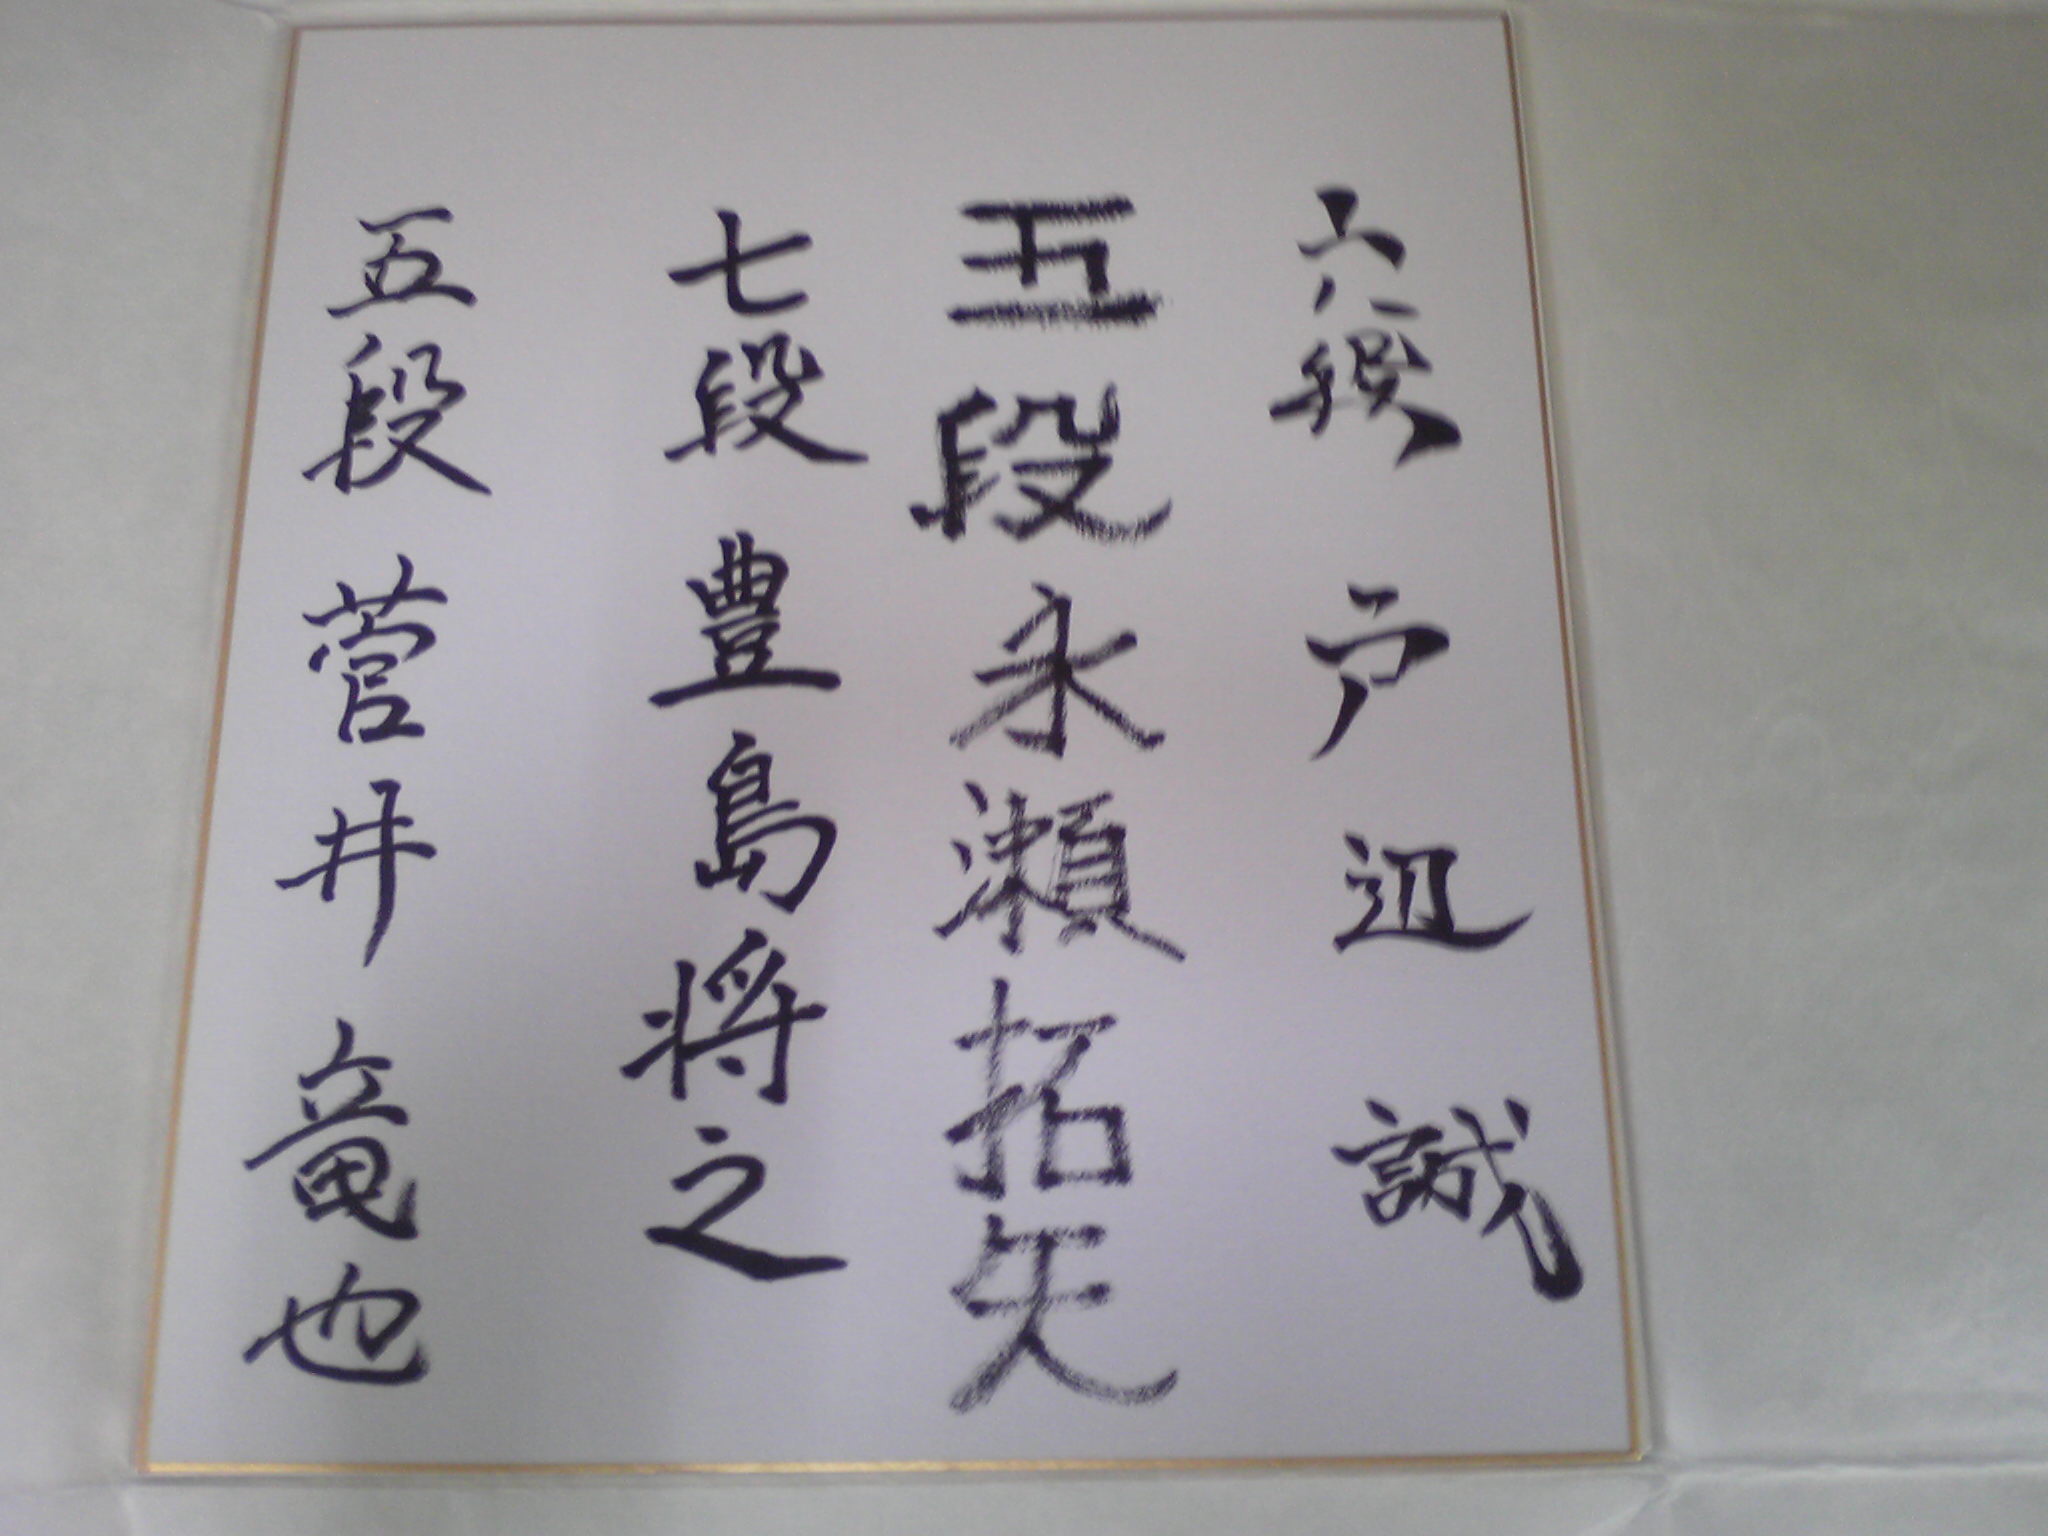 六段 戸辺 誠
五段 永瀬拓矢
七段 豊島将之
五段 菅井竜也